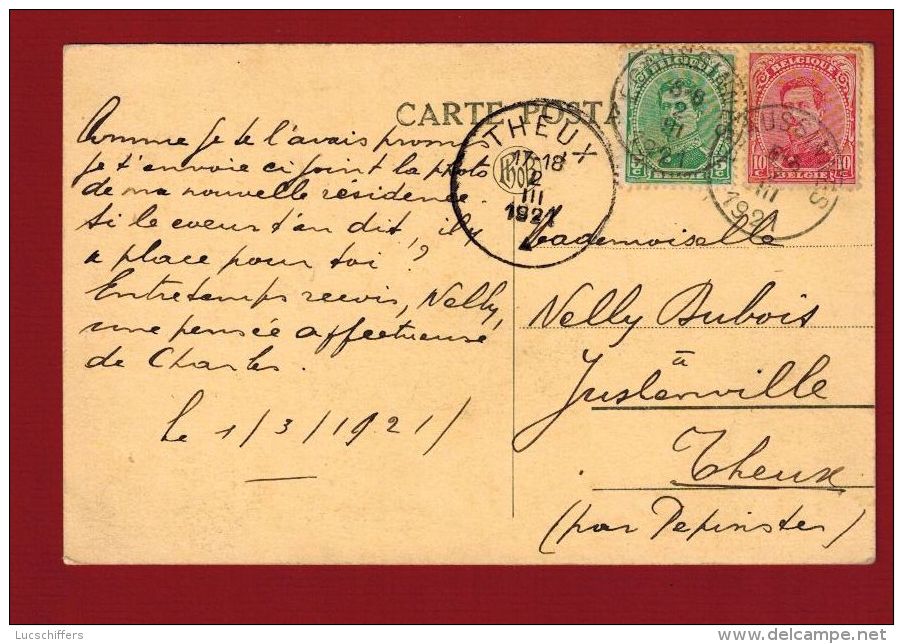 CARTE POSTA
Comme je te l'avais promis
je t'envoie ci joint la photo
de ma nouvelle résidence.
Si le coeur t'en dit, il y
a place pour toi?
Entretemps reçois, Nelly,
une pensée affectueuse
de Charles.
Le 1/3/1921/
THEUX
17-18
2
III
1921
BELGIQUE
BELGIË
BELGIQUE
10 10
BELGIË
2
III
1921
III
1921
Mademoiselle
Nelly Dubois
à
Juslenville
Theux
(par Pepinster)
Lucschiffers
delcampe.net